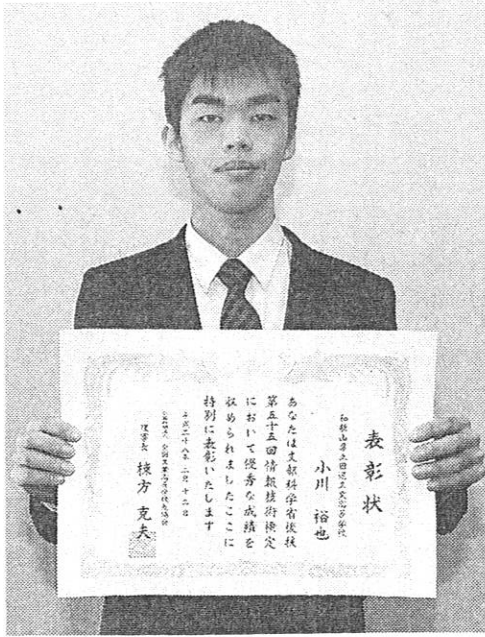 表彰状
和歌山県立田辺工業高等学校
小川 裕也
あなたは文部科学省後援
第五十五回情報技術検定
において優秀な成績を
収められましたここに
特別に表彰いたします
平成二十八年二月十二日
公益社団法人 全国工業高等学校長協会
理事長 棟方 克夫